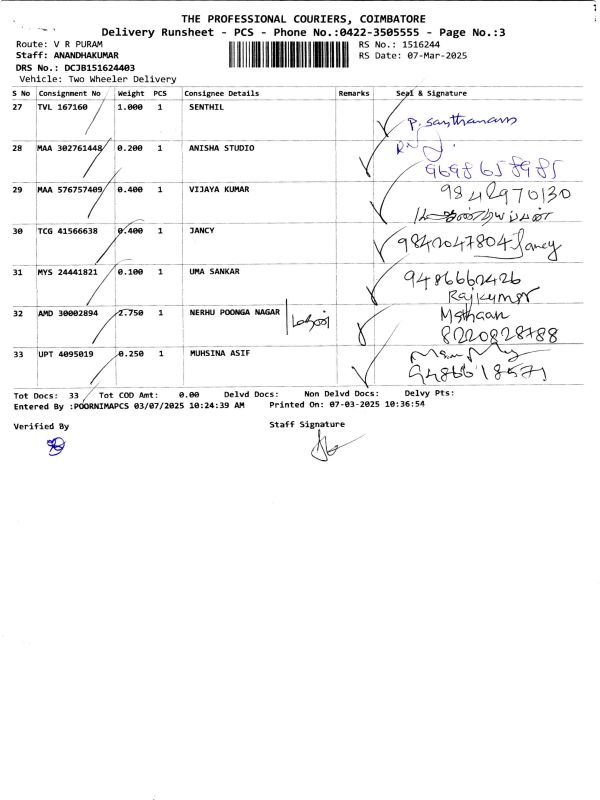 THE PROFESSIONAL COURIERS, COIMBATORE
Delivery Runsheet - PCS - Phone No.:0422-3505555 - Page No.:3
Route: V R PURAM RS No.: 1516244
Staff: ANANDHAKUMAR RS Date: 07-Mar-2025
DRS No.: DCJB151624403
Vehicle: Two Wheeler Delivery
S No Consignment No Weight PCS Consignee Details Remarks Seal & Signature
27 TVL 167160 1.000 1 SENTHIL
P. Santhanam
28 MAA 302761448 0.200 1 ANISHA STUDIO
9698658985
29 MAA 576757409 0.400 1 VIJAYA KUMAR 9842970130
30 TCG 41566638 0.400 1 JANCY
9842047804 Jancy
31 MYS 24441821 0.100 1 UMA SANKAR 9486662426
Rajkumar
32 AMD 30002894 2.750 1 NERHU POONGA NAGAR
8220828788
33 UPT 4095019 0.250 1 MUHSINA ASIF
9486618571
Tot Docs: 33 Tot COD Amt: 0.00 Delvd Docs: Non Delvd Docs: Delvy Pts:
Entered By :POORNIMAPCS 03/07/2025 10:24:39 AM Printed On: 07-03-2025 10:36:54
Verified By Staff Signature